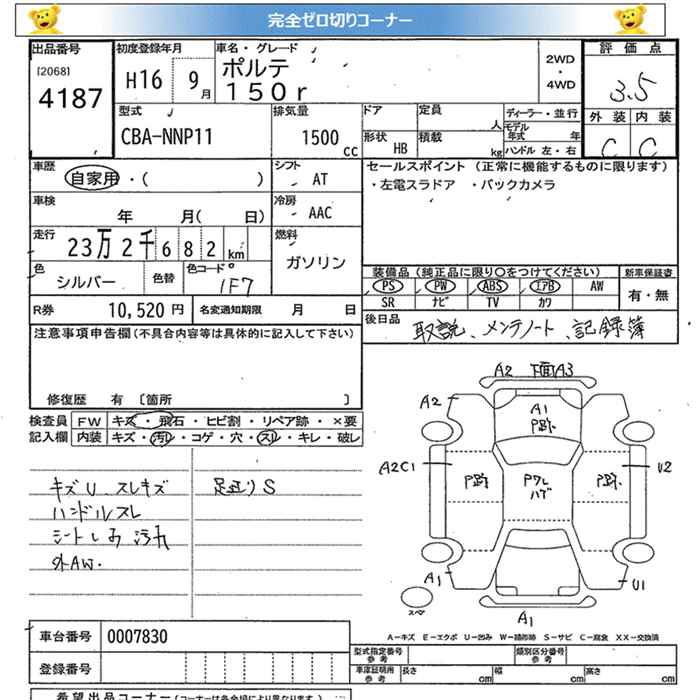 完全ゼロ切りコーナー
出品番号 初度登録年月 車名・グレード 評価点
[2068] 4187 H16 9月 ポルテ 150r 2WD・4WD 3.5
外装 内装
C C
型式 排気量 ドア 定員 人 ディーラー・並行
CBA-NNP11 1500cc 形状 HB 積載 kg モデル年式 年
ハンドル 左・右
車歴 自家用・( ) シフト AT セールスポイント (正常に機能するものに限ります)
・左電スラドア ・バックカメラ
車検 年 月( 日) 冷房 AAC
走行 23万2千682km 燃料 ガソリン
装備品 (純正品に限り○をつけてください) 新車保証書
色 シルバー 色替 色コード 1F7
PS PW ABS エアB AW 有・無
SR ナビ TV カワ
R券 10,520円 名変通知期限 月 日
後日品 取説、メンテノート、記録簿
注意事項申告欄(不具合内容等は具体的に記入して下さい)
修復歴 有 [箇所 ]
検査員記入欄 FW キズ・飛石・ヒビ割・リペア跡・×要
内装 キズ・汚レ・コゲ・穴・スレ・キレ・破レ
キズU、スレキズ 足廻りS
ハンドルスレ
シートしみ 汚れ
外AW.
A2 下面A3
A2
A1
A2C1 U2
ハゲ
A1 U1
スペア
A1
A−キズ E−エクボ U−凹み W−補修跡 S−サビ C−腐食 XX−交換済
車台番号 0007830
登録番号
型式指定番号 参考 類別区分番号 参考
車庫証明用 参考 長さ cm 幅 cm 高さ cm
希望出品コーナー